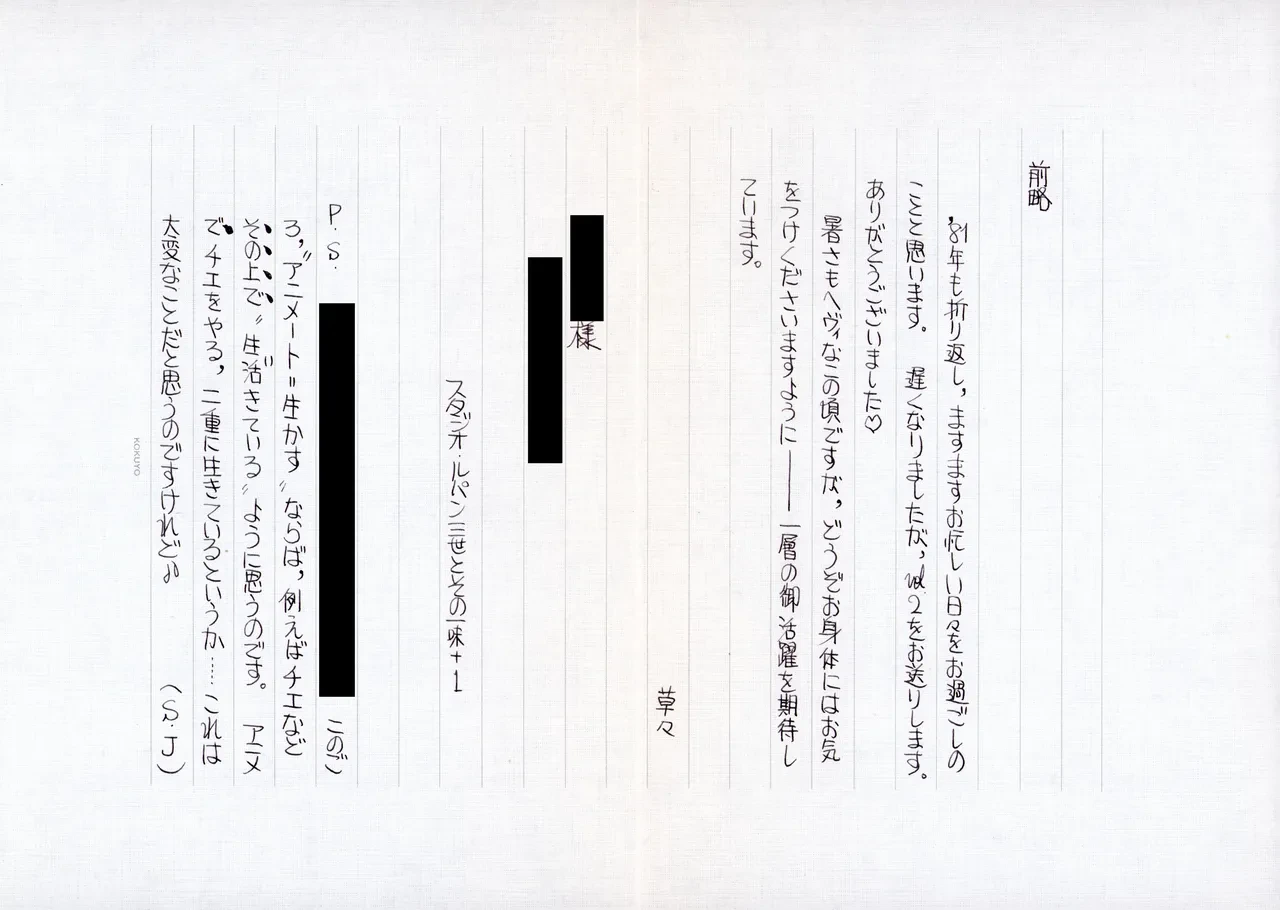 前略
'81年も折り返し，ますますお忙しい日々をお過ごしの
ことと思います。　遅くなりましたが，vol.2をお送りします。
ありがとうございました♡
暑さもヘヴィなこの頃ですが，どうぞお身体にはお気
をつけくださいますように――一層の御活躍を期待し
ています。
草々
様
スタジオ・ルパン三世とその一味+1
P.S.　このご
ろ，〝アニメート=生かす〟ならば，例えばチエなど
その上で〝生活きている〟ように思うのです。　アニメ
でチエをやる，二重に生きているというか……これは
大変なことだと思うのですけれど♪　(S.J)
KOKUYO